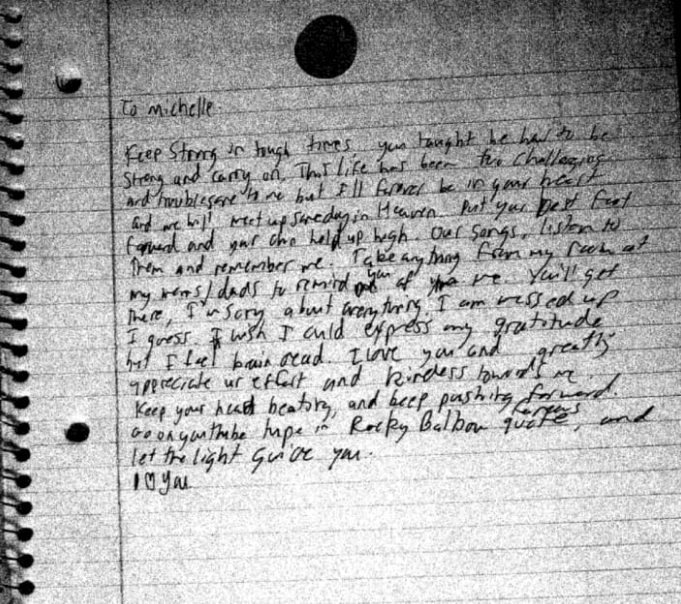 To Michelle
Keep Strong in tough times you taught me how to be
Strong and carry on. This life has been too challenging
and troublesome to me but I'll forever be in your heart
and we will meet up someday in Heaven. Put your best foot
forward and your chin held up high. Our songs, listen to
them and remember me. Take anything from my room at
my moms/dads to remind you of me. You'll get
there, I'm sorry about everything. I am messed up
I guess. I wish I could express my gratitude
but I feel brain dead. I love you and greatly
appreciate ur effort and kindness towards me.
Keep your heart beating, and keep pushing forward.
Go on youtube type in Rocky Balboa famous quote, and
let the light Guide you.
I ♡ you